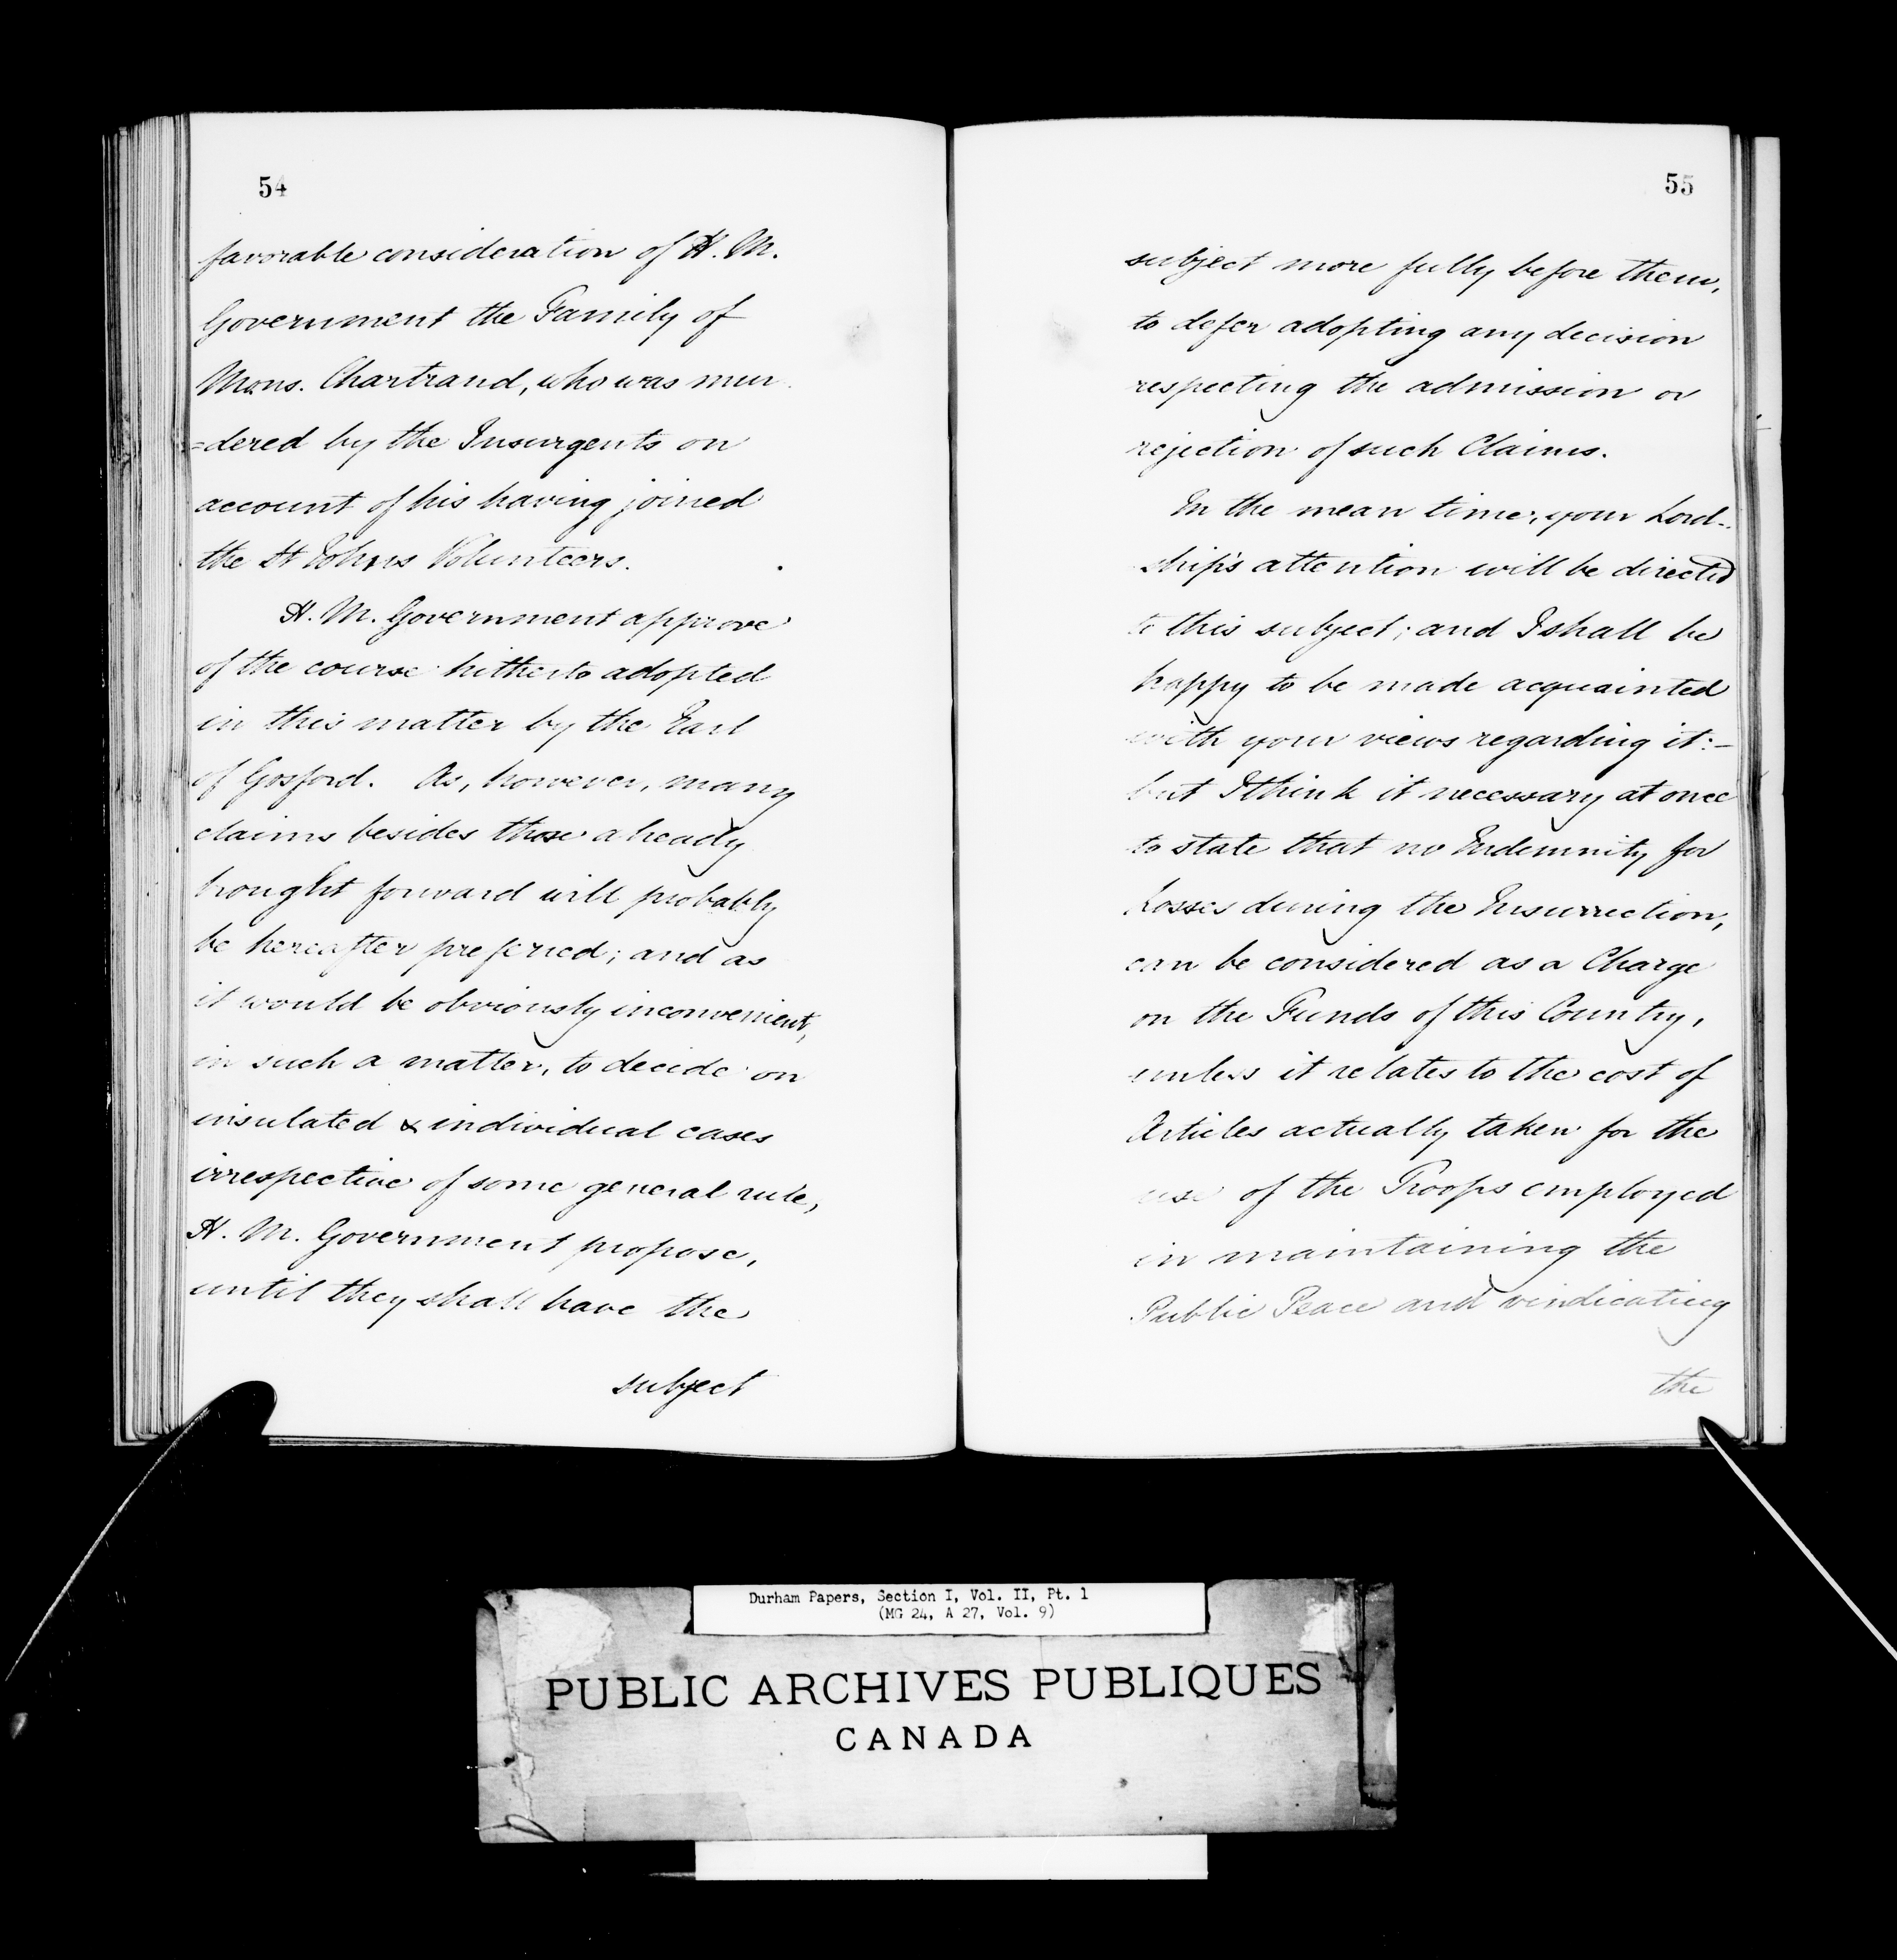 54
favorable consideration of H. M.
Government the Family of
Mons. Chartrand, who was mur
=dered by the Insurgents on
account of his having joined
the St Johns Volunteers.
H. M. Government approve
of the course hitherto adopted
in this matter by the Earl
of Gosford. As, however, many
claims besides those already
brought forward will probably
be hereafter preferred; and as
it would be obviously inconvenient,
in such a matter, to decide on
insulated & individual cases
irrespective of some general rule,
H. M. Government propose,
until they shall have the
subject
55
subject more fully before them,
to defer adopting any decision
respecting the admission or
rejection of such Claims.
In the mean time, your Lord-
ship's attention will be directed
to this subject; and I shall be
happy to be made acquainted
with your views regarding it:-
but I think it necessary at once
to state that no Indemnity for
Losses during the Insurrection,
can be considered as a Charge
on the Funds of this Country,
unless it relates to the cost of
Articles actually taken for the
use of the Troops employed
in maintaining the
Public Peace and vindicating
the
Durham Papers, Section I, Vol. II, Pt. 1
(MG 24, A 27, Vol. 9)
PUBLIC ARCHIVES PUBLIQUES
CANADA